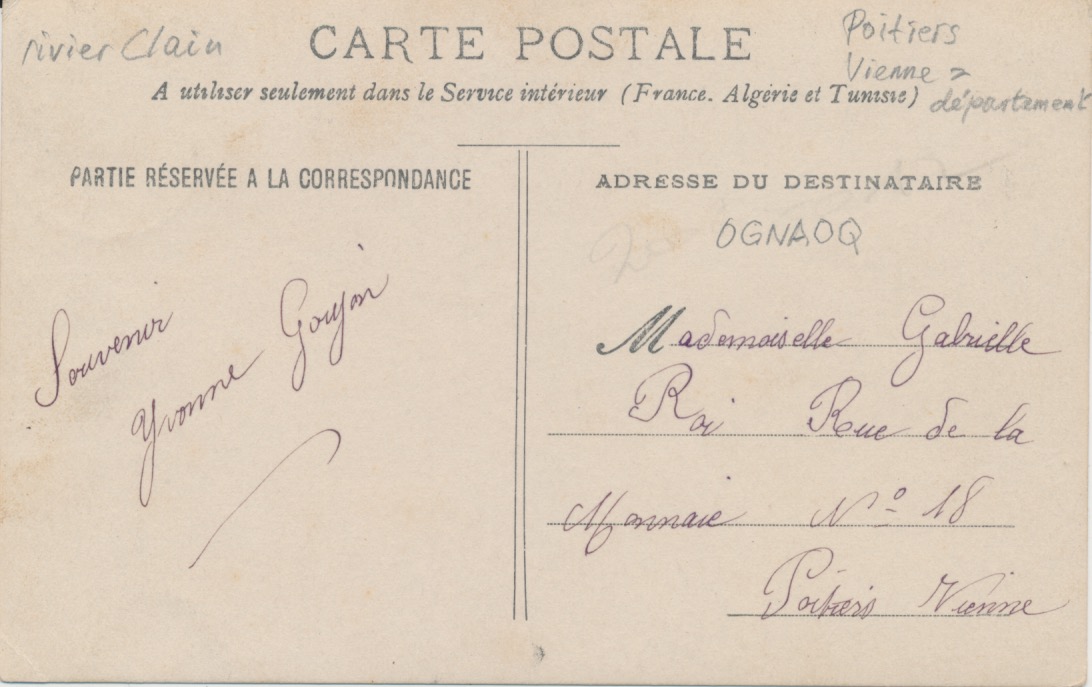 rivier Clain
CARTE POSTALE
Poitiers
Vienne =
département
A utiliser seulement dans le Service intérieur (France. Algérie et Tunisie)
PARTIE RÉSERVÉE A LA CORRESPONDANCE
Souvenir
Yvonne Goujon
ADRESSE DU DESTINATAIRE
OGNAOQ
Mademoiselle Gabrielle
Roi Rue de la
Monnaie Nº 18
Poitiers Vienne